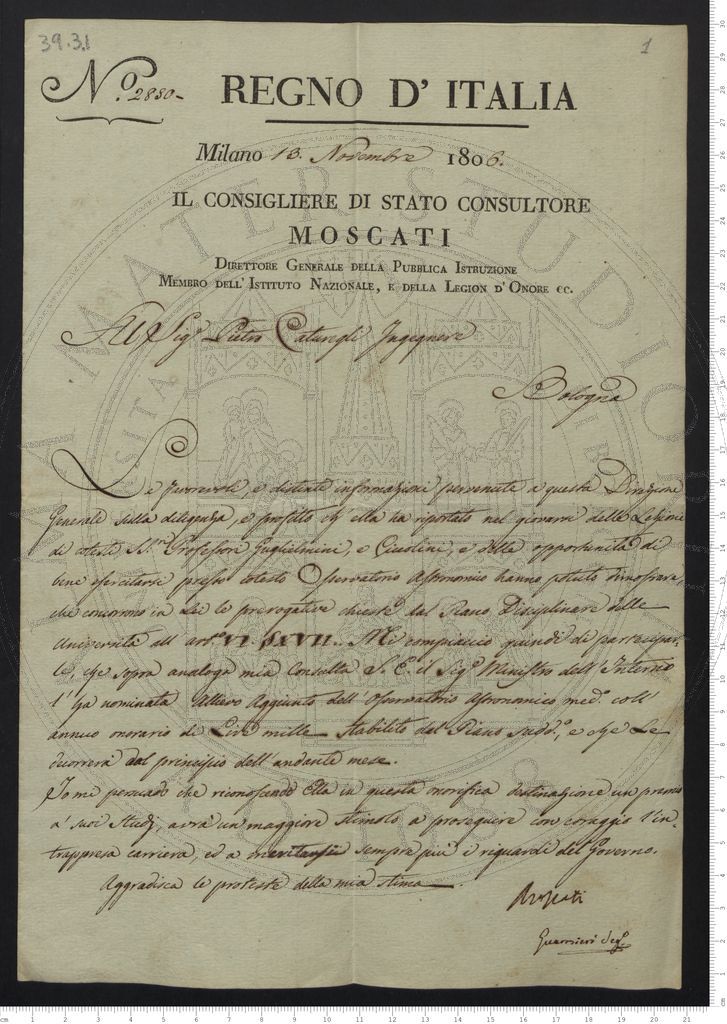 39.3.1
1
N.º 2850-
REGNO D' ITALIA
Milano 13. Novembre 1806.
IL CONSIGLIERE DI STATO CONSULTORE
MOSCATI
DIRETTORE GENERALE DELLA PUBBLICA ISTRUZIONE
MEMBRO DELL' ISTITUTO NAZIONALE, E DELLA LEGION D' ONORE EC.
Al Sigr Pietro Caturegli Ingegnere
Bologna
Le favorevoli, e distinte informazioni pervenute a questa Direzione
Generale sulla diligenza, e profitto ch' ella ha riportato nel giovarsi delle Lezioni
di cotesti Sri Professori Guglielmini, e Ciccolini, e della opportunità di
bene esercitarsi presso cotesto Osservatorio Astronomico hanno potuto dimostrare,
che concorrono in Lei le prerogative chieste dal Piano Disciplinare delle
Università all' arto VI. Mi compiaccio quindi di partecipar-
le, che sopra analoga mia Consulta S. E. il Sigr Ministro dell' Interno
l' ha nominata Allievo Aggiunto dell' Osservatorio Astronomico medo coll'
annuo onorario di Lire mille stabilito dal Piano suddo, e che Le
decorrerà dal principio dell' andante mese.
Io mi persuado che riconoscendo Ella in questa onorifica destinazione un premio
a' suoi Studj, avrà un maggiore stimolo a proseguire con coraggio l' in-
trappresa carriera, ed a meritarsi sempre più i riguardi del Governo.
Aggradisca le proteste della mia stima.
Moscati
Guarnieri Sego